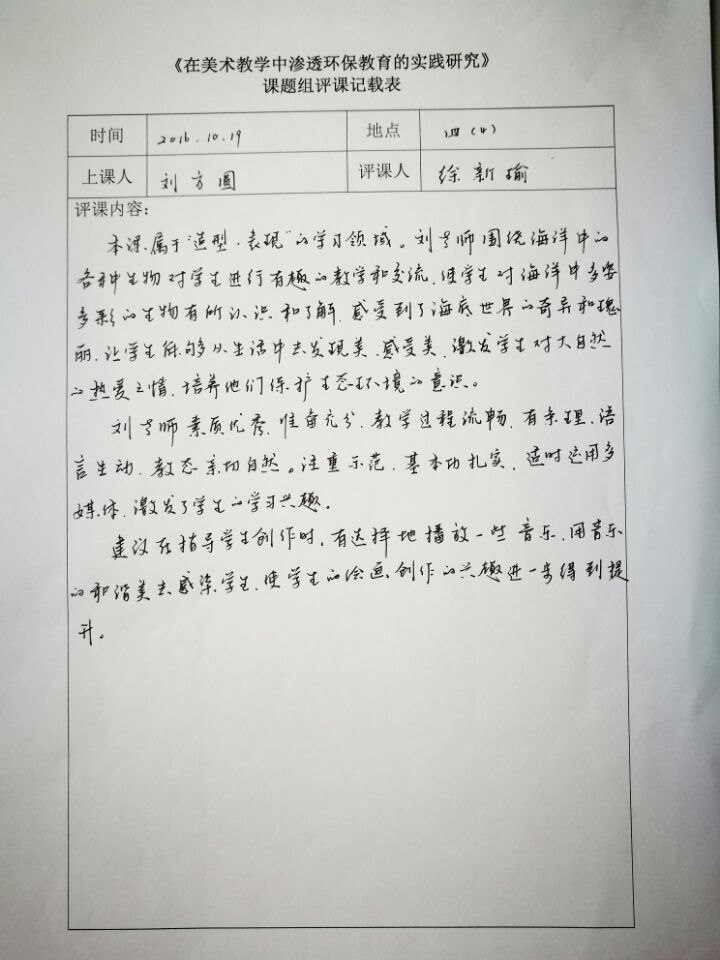 《在美术教学中渗透环保教育的实践研究》
课题组评课记载表
时间 2016.10.19 地点 四(4)
上课人 刘方圆 评课人 徐新瑜
评课内容：
本课属于“造型·表现”的学习领域。刘老师围绕海洋中的
各种生物对学生进行有趣的教学和交流,使学生对海洋中多姿
多彩的生物有所认识和了解,感受到了海底世界的奇异和瑰
丽,让学生能够从生活中去发现美、感受美,激发学生对大自然
的热爱之情,培养他们保护生态环境的意识。
刘老师素质优秀,准备充分,教学过程流畅,有条理,语
言生动,教态亲切自然。注重示范,基本功扎实,适时运用多
媒体,激发了学生的学习兴趣。
建议在指导学生创作时,有选择地播放一些音乐,用音乐
的和谐美去感染学生,使学生的绘画创作的兴趣进一步得到提
升。